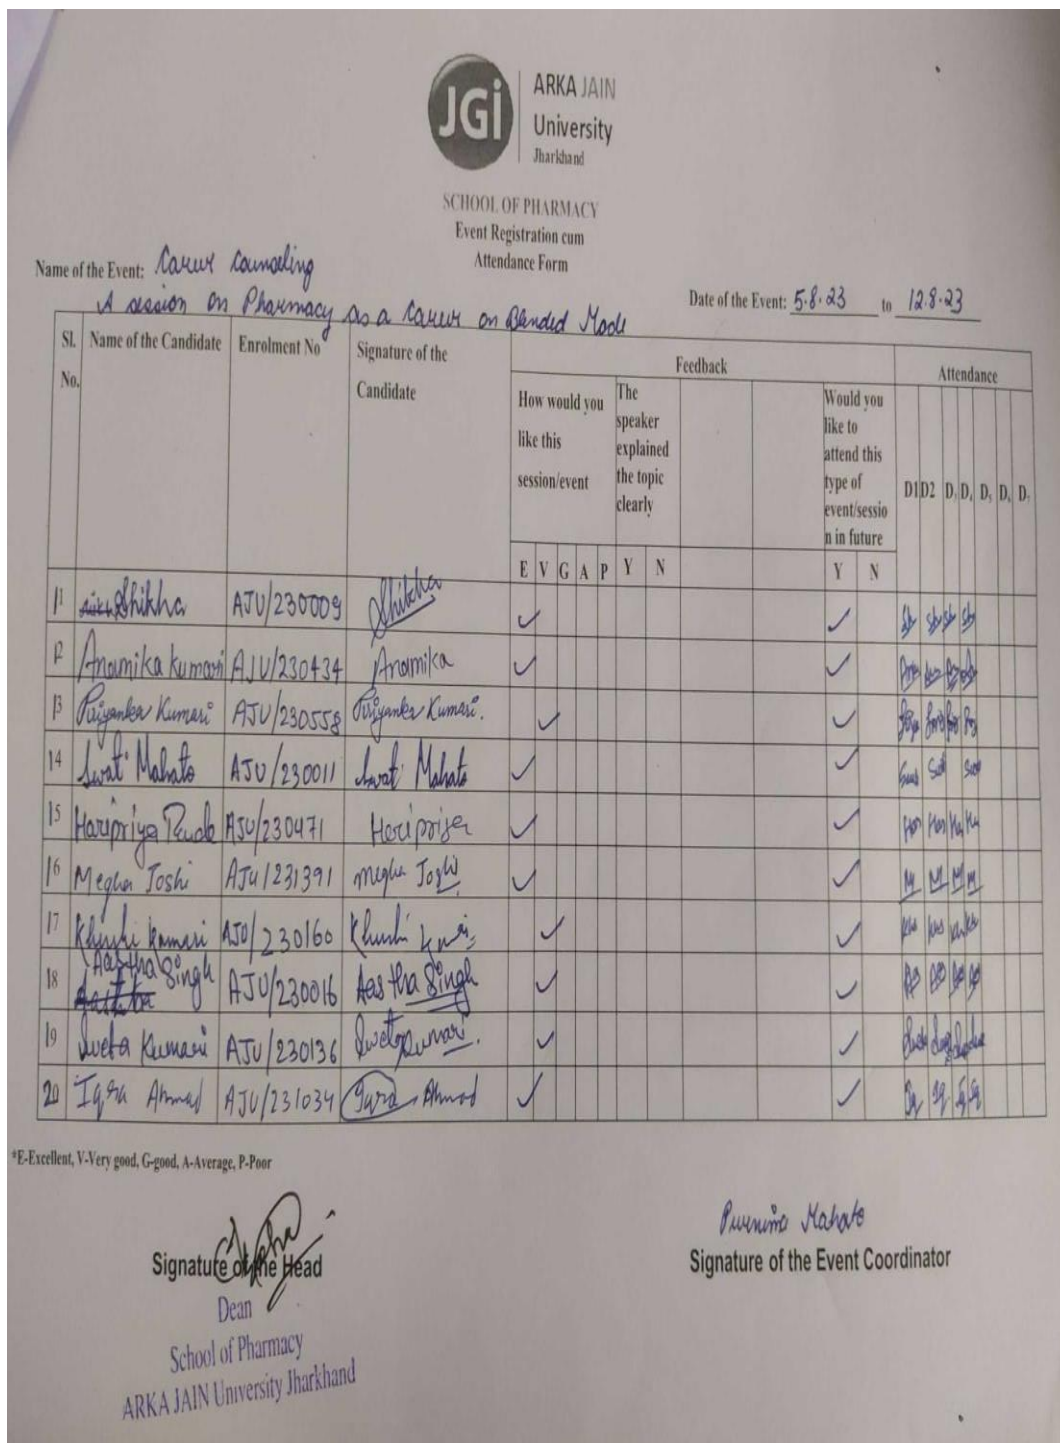 JGi
ARKA JAIN
University
Jharkhand
SCHOOL OF PHARMACY
Event Registration cum
Attendance Form
Name of the Event: Career Counseling
A session on Pharmacy as a Career on Blended Mode
Date of the Event: 5.8.23 to 12.8.23
Sl. No. Name of the Candidate Enrolment No Signature of the Candidate Feedback Attendance
How would you like this session/event The speaker explained the topic clearly Would you like to attend this type of event/session in future D1 D2 D3 D4 D5 D6 D7
E V G A P Y N Y N
11 Shikha AJU/230009 Shikha ✓ ✓
12 Anamika Kumari AJU/230434 Anamika ✓ ✓
13 Priyanka Kumari AJU/230558 Priyanka Kumari. ✓ ✓
14 Swati Mahato AJU/230011 Swati Mahato ✓ ✓
15 Haripriya AJU/230471 Haripriya ✓ ✓
16 Megha Joshi AJU/231391 Megha Joshi ✓ ✓ M M M M
17 Khushi Kumari AJU/230160 Khushi ✓ ✓
18 Aastha Singh AJU/230016 Aastha Singh ✓ ✓
19 Sweta Kumari AJU/230136 Sweta Kumari. ✓ ✓
20 Iqra Ahmad AJU/231034 Iqra Ahmad ✓ ✓
*E-Excellent, V-Very good, G-good, A-Average, P-Poor
Purnima Mahato
Signature of the Head Signature of the Event Coordinator
Dean
School of Pharmacy
ARKA JAIN University Jharkhand